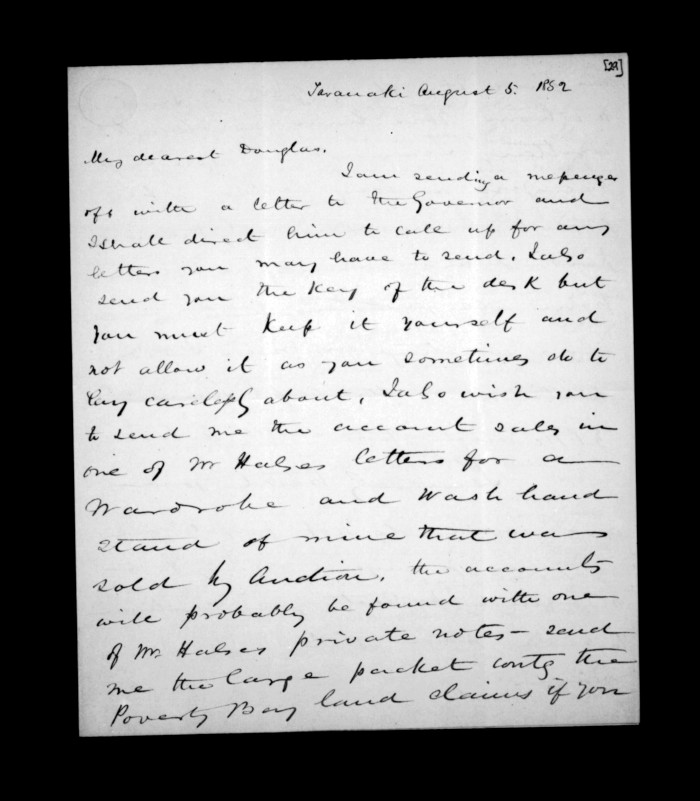 [29]
Taranaki August 5. 1852
My dearest Douglas,
I am sending a messenger
off with a letter to the Governor and
I shall direct him to call up for any
letters you may have to send. I also
send you the key of the desk but
you must keep it yourself and
not allow it as you sometimes do to
lay carelessly about, I also wish you
to send me the account sales in
one of Mr Halses letters for a
Wardrobe and Wash hand
stand of mine that was
sold by Auction, the accounts
will probably be found with one
of Mr Halses private notes - send
me the large packet contg the
Poverty Bay land claims if you